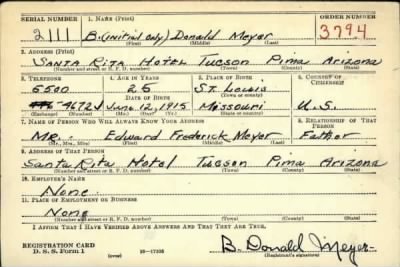 SERIAL NUMBER 1. NAME (Print) ORDER NUMBER
2111 B.(initial only) Donald Meyer 3794
(First) (Middle) (Last)
2. ADDRESS (Print)
SANTA RITA HOTEL TUCSON PIMA ARIZONA
(Number and street or R. F. D. number) (Town) (County) (State)
3. TELEPHONE 4. AGE IN YEARS 5. PLACE OF BIRTH 6. COUNTRY OF CITIZENSHIP
5500 25 ST. LOUIS
DATE OF BIRTH (Town or county)
4672J June 12, 1915 Missouri U.S.
(Exchange) (Number) (Mo.) (Day) (Yr.) (State or country)
7. NAME OF PERSON WHO WILL ALWAYS KNOW YOUR ADDRESS 8. RELATIONSHIP OF THAT PERSON
Mr. Edward Frederick Meyer Father
(Mr., Mrs., Miss) (First) (Middle) (Last)
9. ADDRESS OF THAT PERSON
Santa Rita Hotel Tucson Pima Arizona
(Number and street or R. F. D. number) (Town) (County) (State)
10. EMPLOYER'S NAME
None
11. PLACE OF EMPLOYMENT OR BUSINESS
None
(Number and street or R. F. D. number) (Town) (County) (State)
I AFFIRM THAT I HAVE VERIFIED ABOVE ANSWERS AND THAT THEY ARE TRUE.
REGISTRATION CARD
D. S. S. Form 1 16—17105 B. Donald Meyer
(Registrant's signature)